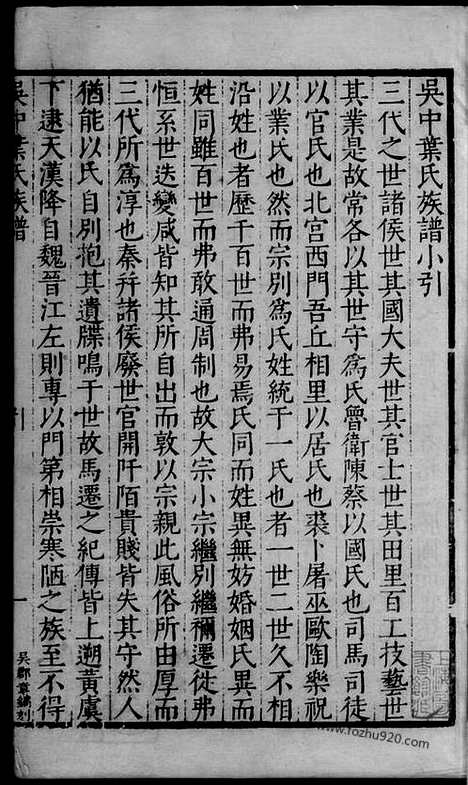 吳中葉氏族譜小引
三代之世諸侯世其國大夫世其官士世其田里百工技藝世
其業是故常各以其世守爲氏魯衛陳蔡以國氏也司馬司徒
以官氏也北宮西門吾丘相里以居氏也裘卜屠巫歐陶樂祝
以業氏也然而宗別爲氏姓統于一氏也者一世二世久不相
沿姓也者歷千百世而弗易焉氏同而姓異無妨婚姻氏異而
姓同雖百世而弗敢通周制也故大宗小宗繼別繼禰遷徙弗
恒系世迭變咸皆知其所自出而敦以宗親此風俗所由厚而
三代所爲淳也秦幷諸侯廢世官開阡陌貴賤皆失其守然人
猶能以氏自別抱其遺牒鳴于世故馬遷之紀傳皆上遡黃虞
下逮天漢降自魏晉江左則專以門第相崇寒陋之族至不得
吳中葉氏族譜
引
一
吳郡章鏞刻
www.fozhu920.com